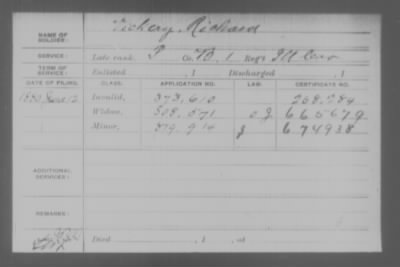 NAME OF SOLDIER: Richard
SERVICE: Late rank, P Co. B, 1 Reg't Ill Cav
TERM OF SERVICE: Enlisted , 1 Discharged , 1
DATE OF FILING. CLASS. APPLICATION NO. LAW. CERTIFICATE NO.
1880 June 12 Invalid, 373,610 268,284
Widow, 508,571 665679
Minor, 519,914 674938
ADDITIONAL SERVICES:
REMARKS:
Died , 1 , at